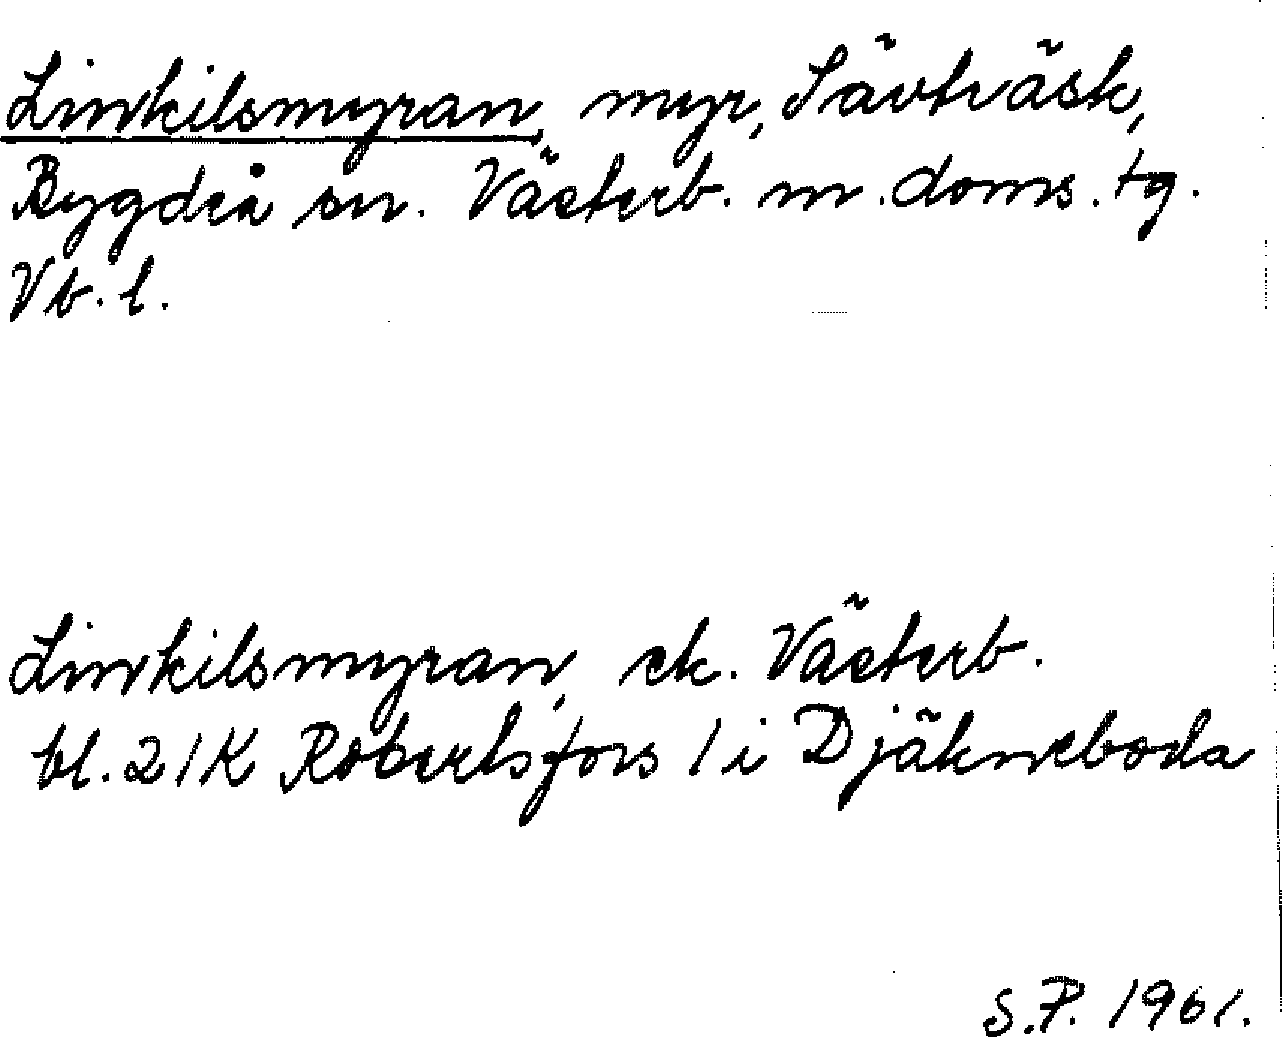 Linkilsmyran, myr, Sävträsk,
Bygdeå sn. Västerb. m. doms. tg.
Vb. l.
Linkilsmyran, ek. Västerb.
bl. 21K Robertsfors 1 i Djäkneboda
S.P. 1961.